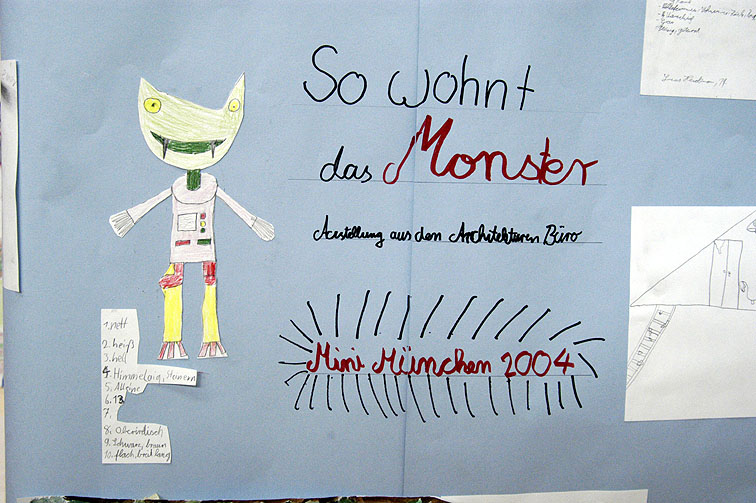 So wohnt
das Monster
Austellung aus dem Architekturen Büro
Mini München 2004
1. nett
2. heiß
3. hell
4. Himmelaig, steinern
5. Alleine
6. 13
7.
8. Oberirdisch
9. Schwarz, braun
10. flach, breit lang